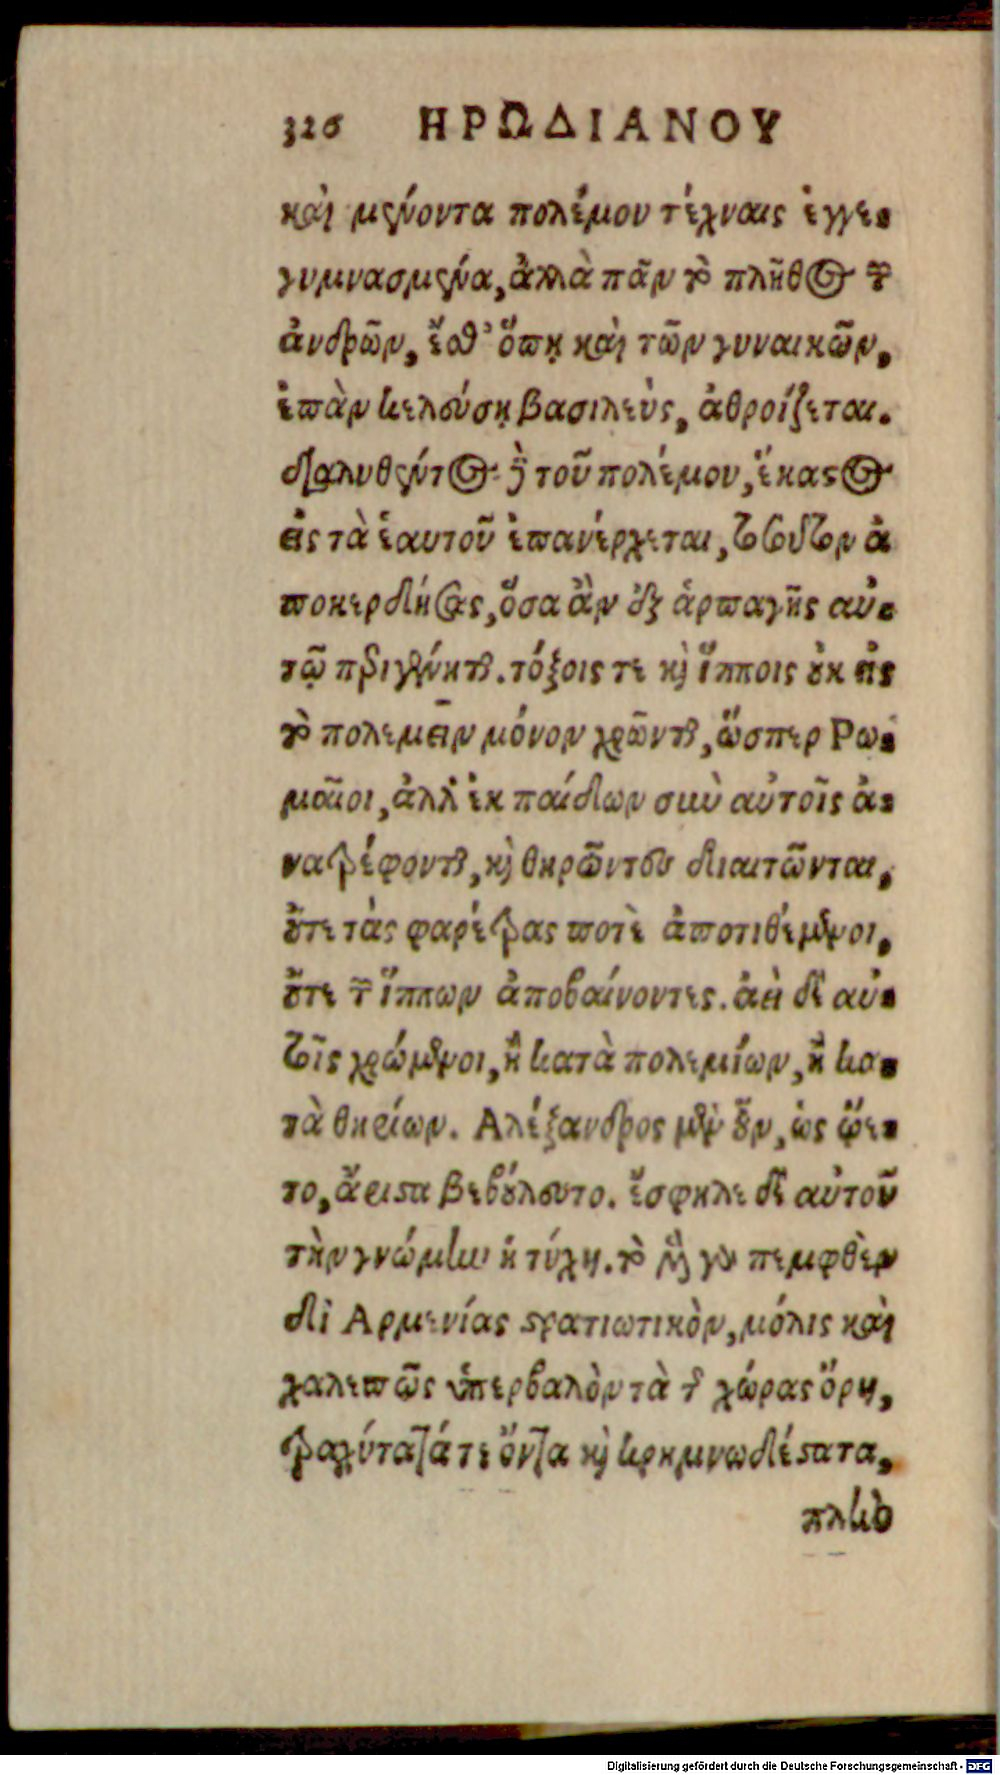 326 ΗΡΩΔΙΑΝΟΥ
καὶ μένοντα πολέμου τέχναις ἐγγε-
γυμνασμένα, ἀλλὰ πᾶν τὸ πλῆθος τῶν
ἀνδρῶν, ἔσθ' ὅπη καὶ τῶν γυναικῶν,
ἐπὰν κελεύσῃ βασιλεὺς, ἀθροίζεται.
διαλυθέντος δὲ τοῦ πολέμου, ἕκαστος
εἰς τὰ ἑαυτοῦ ἐπανέρχεται, τοσοῦτον ἀ
ποκερδήσας, ὅσα ἂν ἐξ ἁρπαγῆς αὐ-
τῷ περιγένηται. τόξοις τε καὶ ἵπποις οὐκ εἰς
τὸ πολεμεῖν μόνον χρῶνται, ὥσπερ Ρω-
μαῖοι, ἀλλ' ἐκ παίδων σὺν αὐτοῖς ἀ-
νατρέφονται, καὶ θηρῶντες διαιτῶνται,
οὔτε τὰς φαρέτρας ποτὲ ἀποτιθέμενοι,
οὔτε τῶν ἵππων ἀποβαίνοντες. ἀεὶ δὲ αὐ-
τοῖς χρώμενοι, ἢ κατὰ πολεμίων, ἢ κα-
τὰ θηρίων. Αλέξανδρος μὲν οὖν, ὡς ᾤε-
το, ἄριστα βεβούλευτο. ἔσφηλε δὲ αὐτοῦ
τὴν γνώμην ἡ τύχη. τὸ μὲν γὰρ πεμφθὲν
δι Αρμενίας στρατιωτικὸν, μόλις καὶ
χαλεπῶς ὑπερβαλὸν τὰ τῆς χώρας ὄρη,
τραχύτατά τε ὄντα καὶ κρημνωδέστατα,
πλὴν
Digitalisierung gefördert durch die Deutsche Forschungsgemeinschaft - DFG